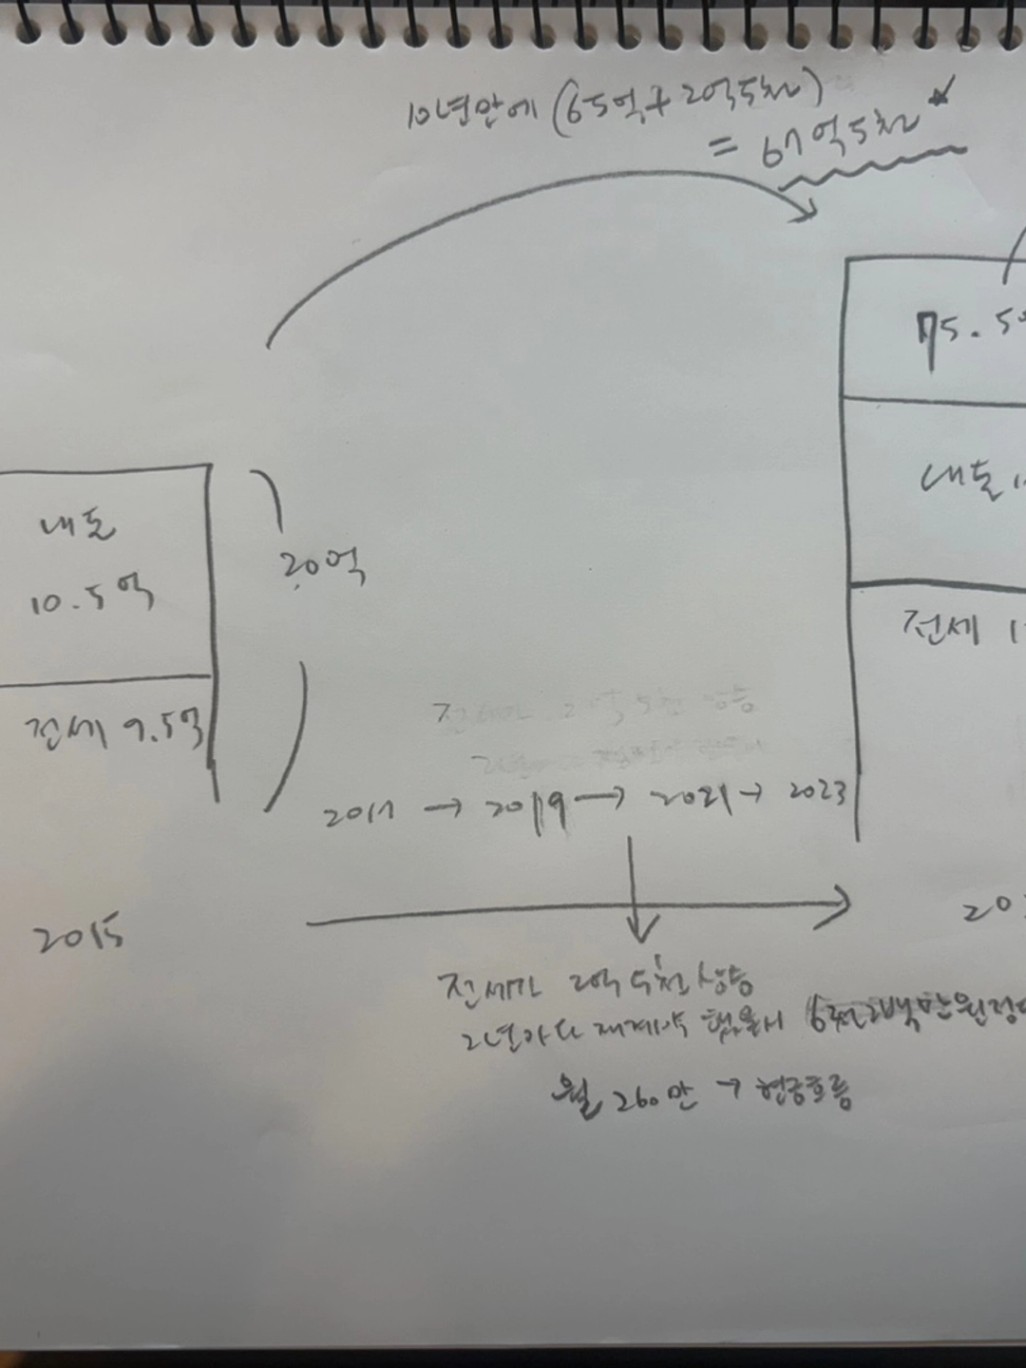 10년안에 (65억+2억5천)
= 67억5천
75.5
내돈
10.5억
20억
내돈 1
전세 9.5억
전세 1
2017 → 2019 → 2021 → 2023
2015
20
전세가 2억5천 상승
2년마다 재계약 했을시 6천2백만원정
월 260만 → 현금흐름